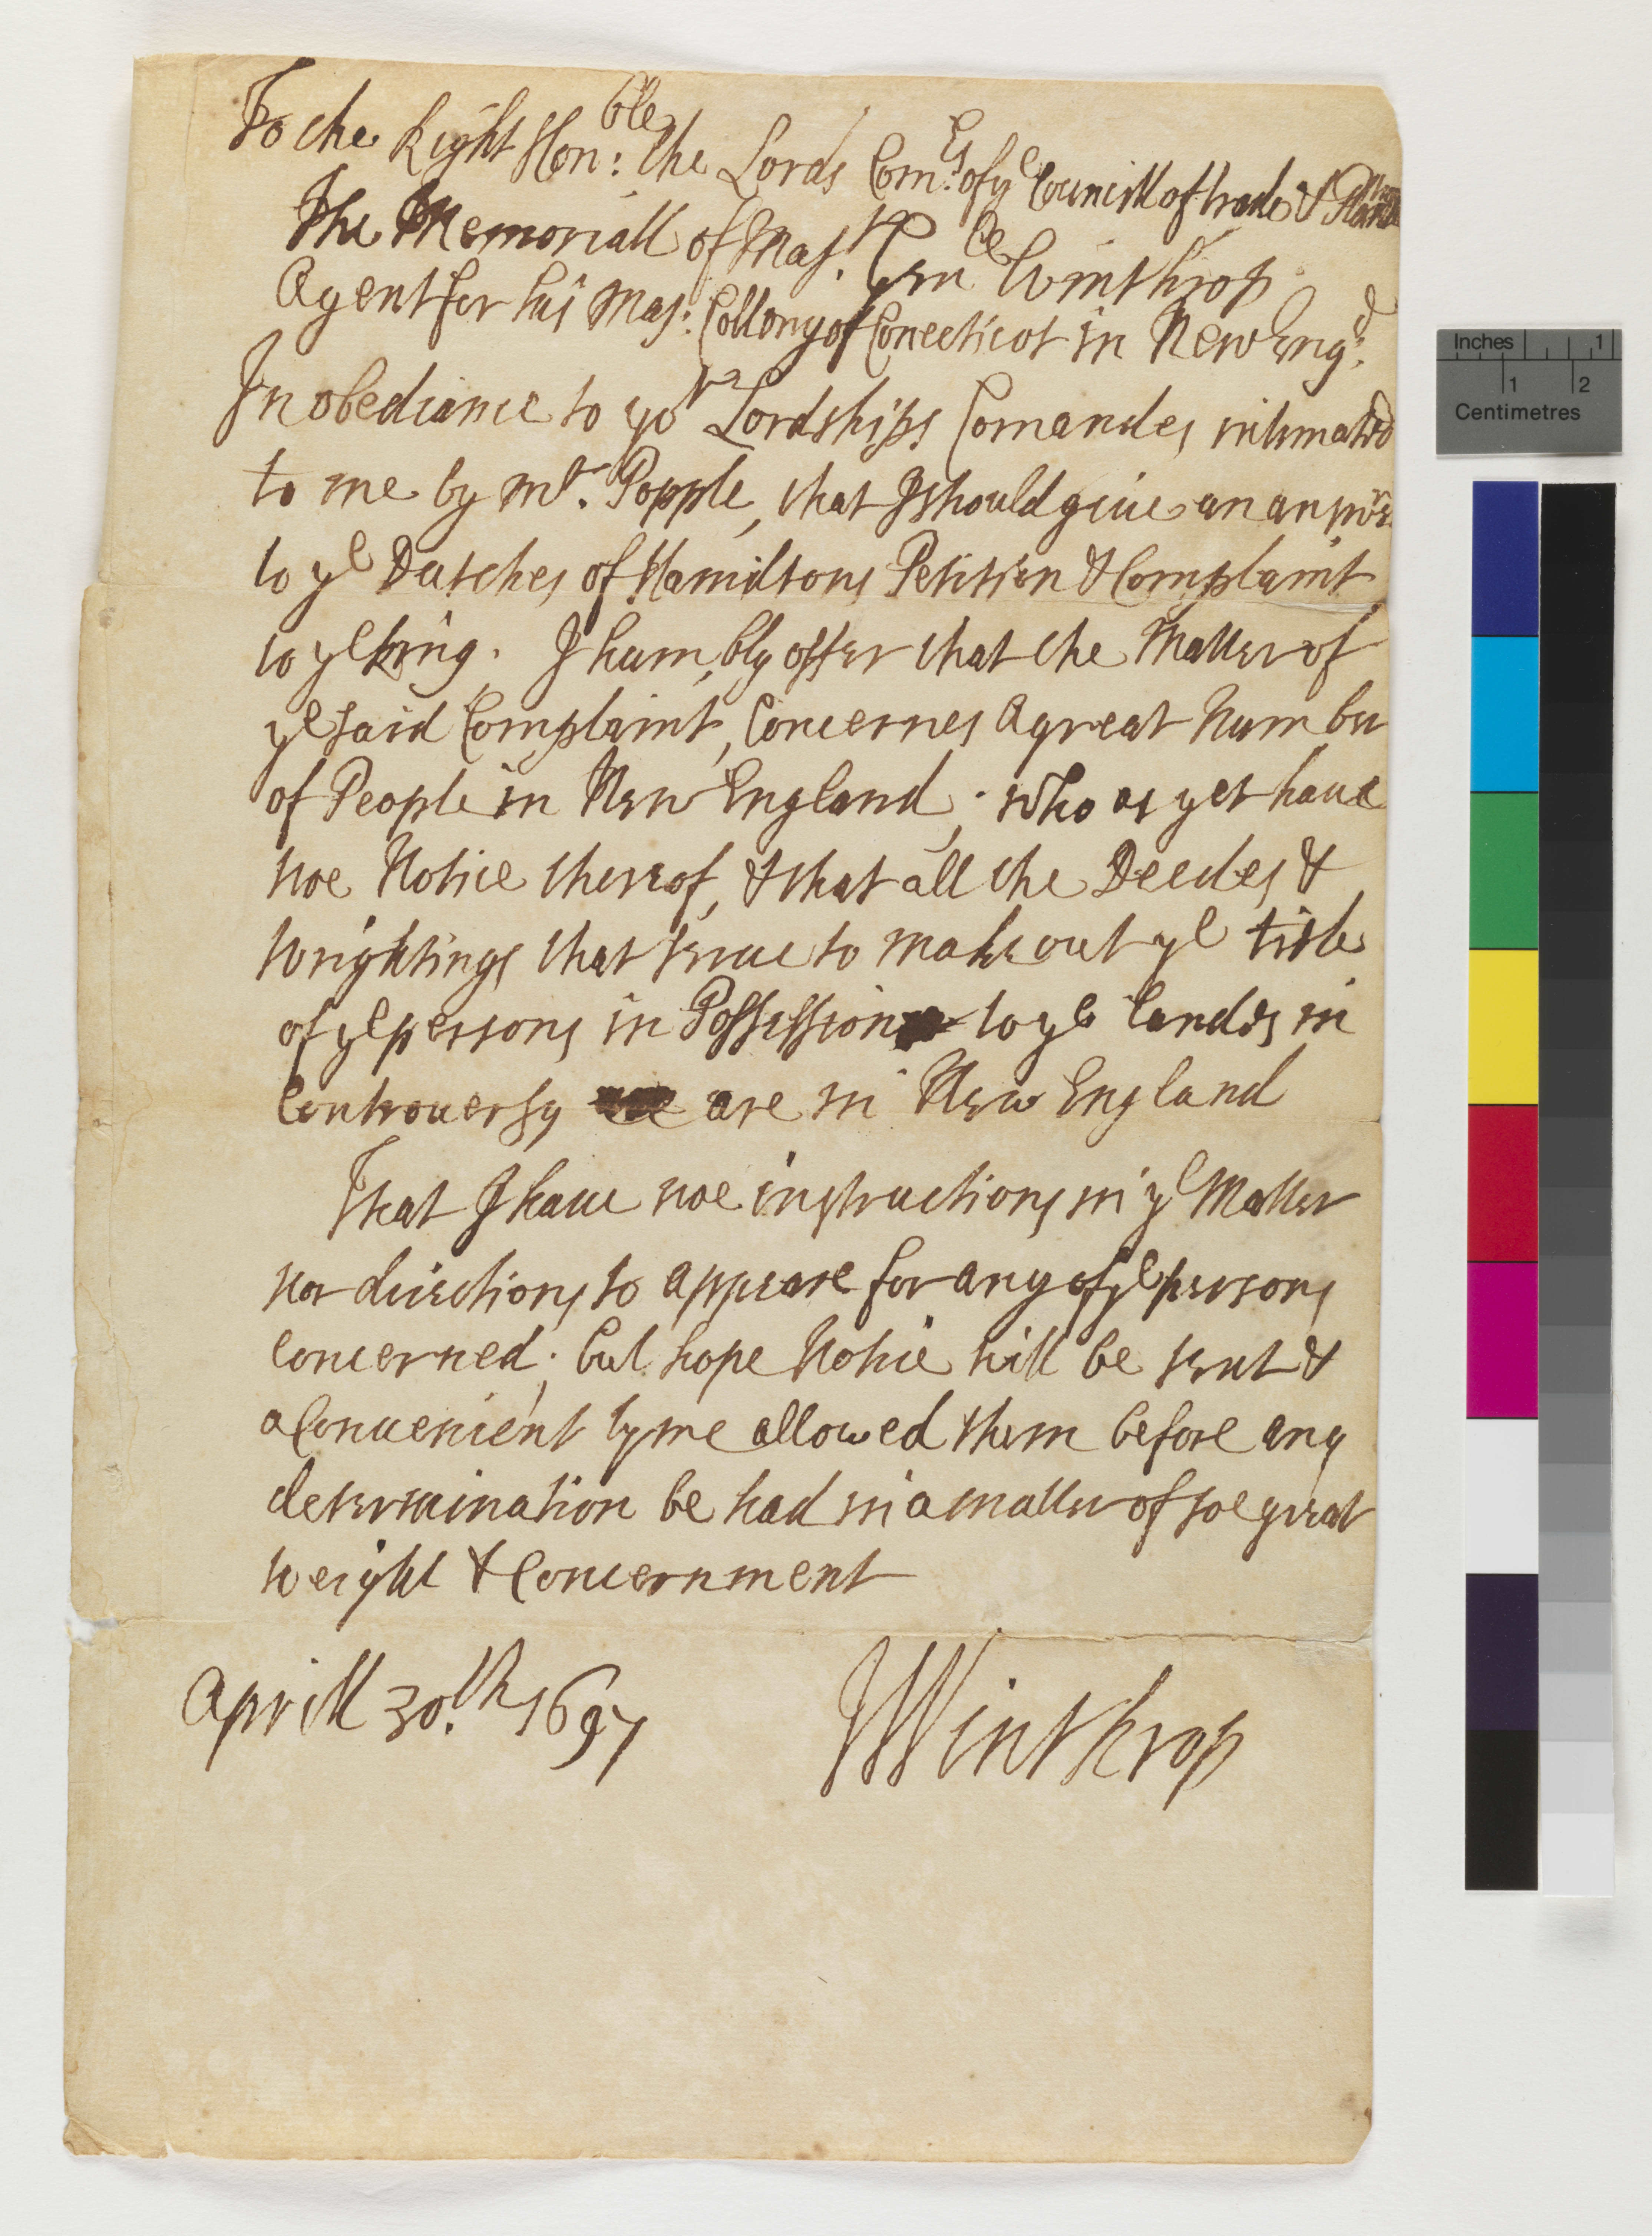 To the Right Hon:ble the Lords Com:rs of ye Councill of trade &
The Memoriall of Maj:r Genll Winthrop
Agent for his Maj: Collony of Conecticot in New Eng:d
In obediance to yor Lordships Comandes intimated
to me by mr. Popple, that I should give an answr
to ye Dutches of Hamiltons Petition & Complaint
to ye king. I humbly offer that the Matter of
ye said Complaint, Concernes a great Number
of People in New England; who as yet have
noe Notice thereof, & that all the Deedes &
Wrightings that serve to make out ye title
of ye persons in Possession to ye landes in
Controversy are in New England
That I have noe instructions in ye Matter
nor directions to appeare for any of ye persons
concerned; but hope Notice will be sent &
a Convenient tyme allowed them before any
determination be had in a matter of soe great
weight & Concernment
Aprill 30.th 1697
JWinthrop
Inches 1
1 2
Centimetres